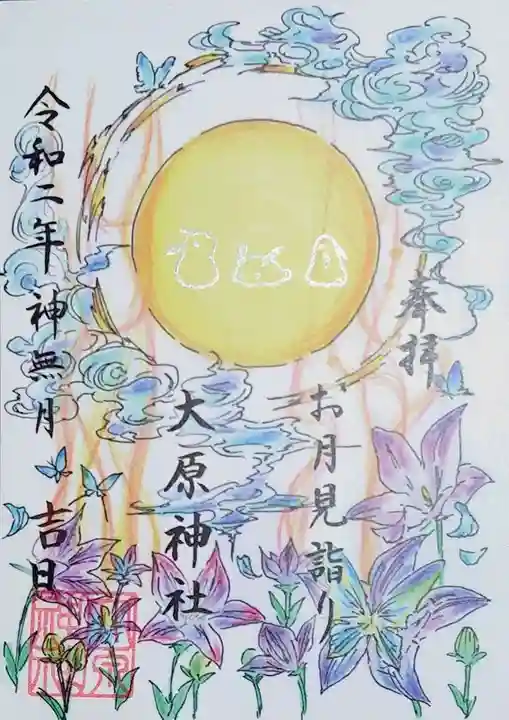 奉拝
お月見詣り
大原神社
令和二年神無月 吉日